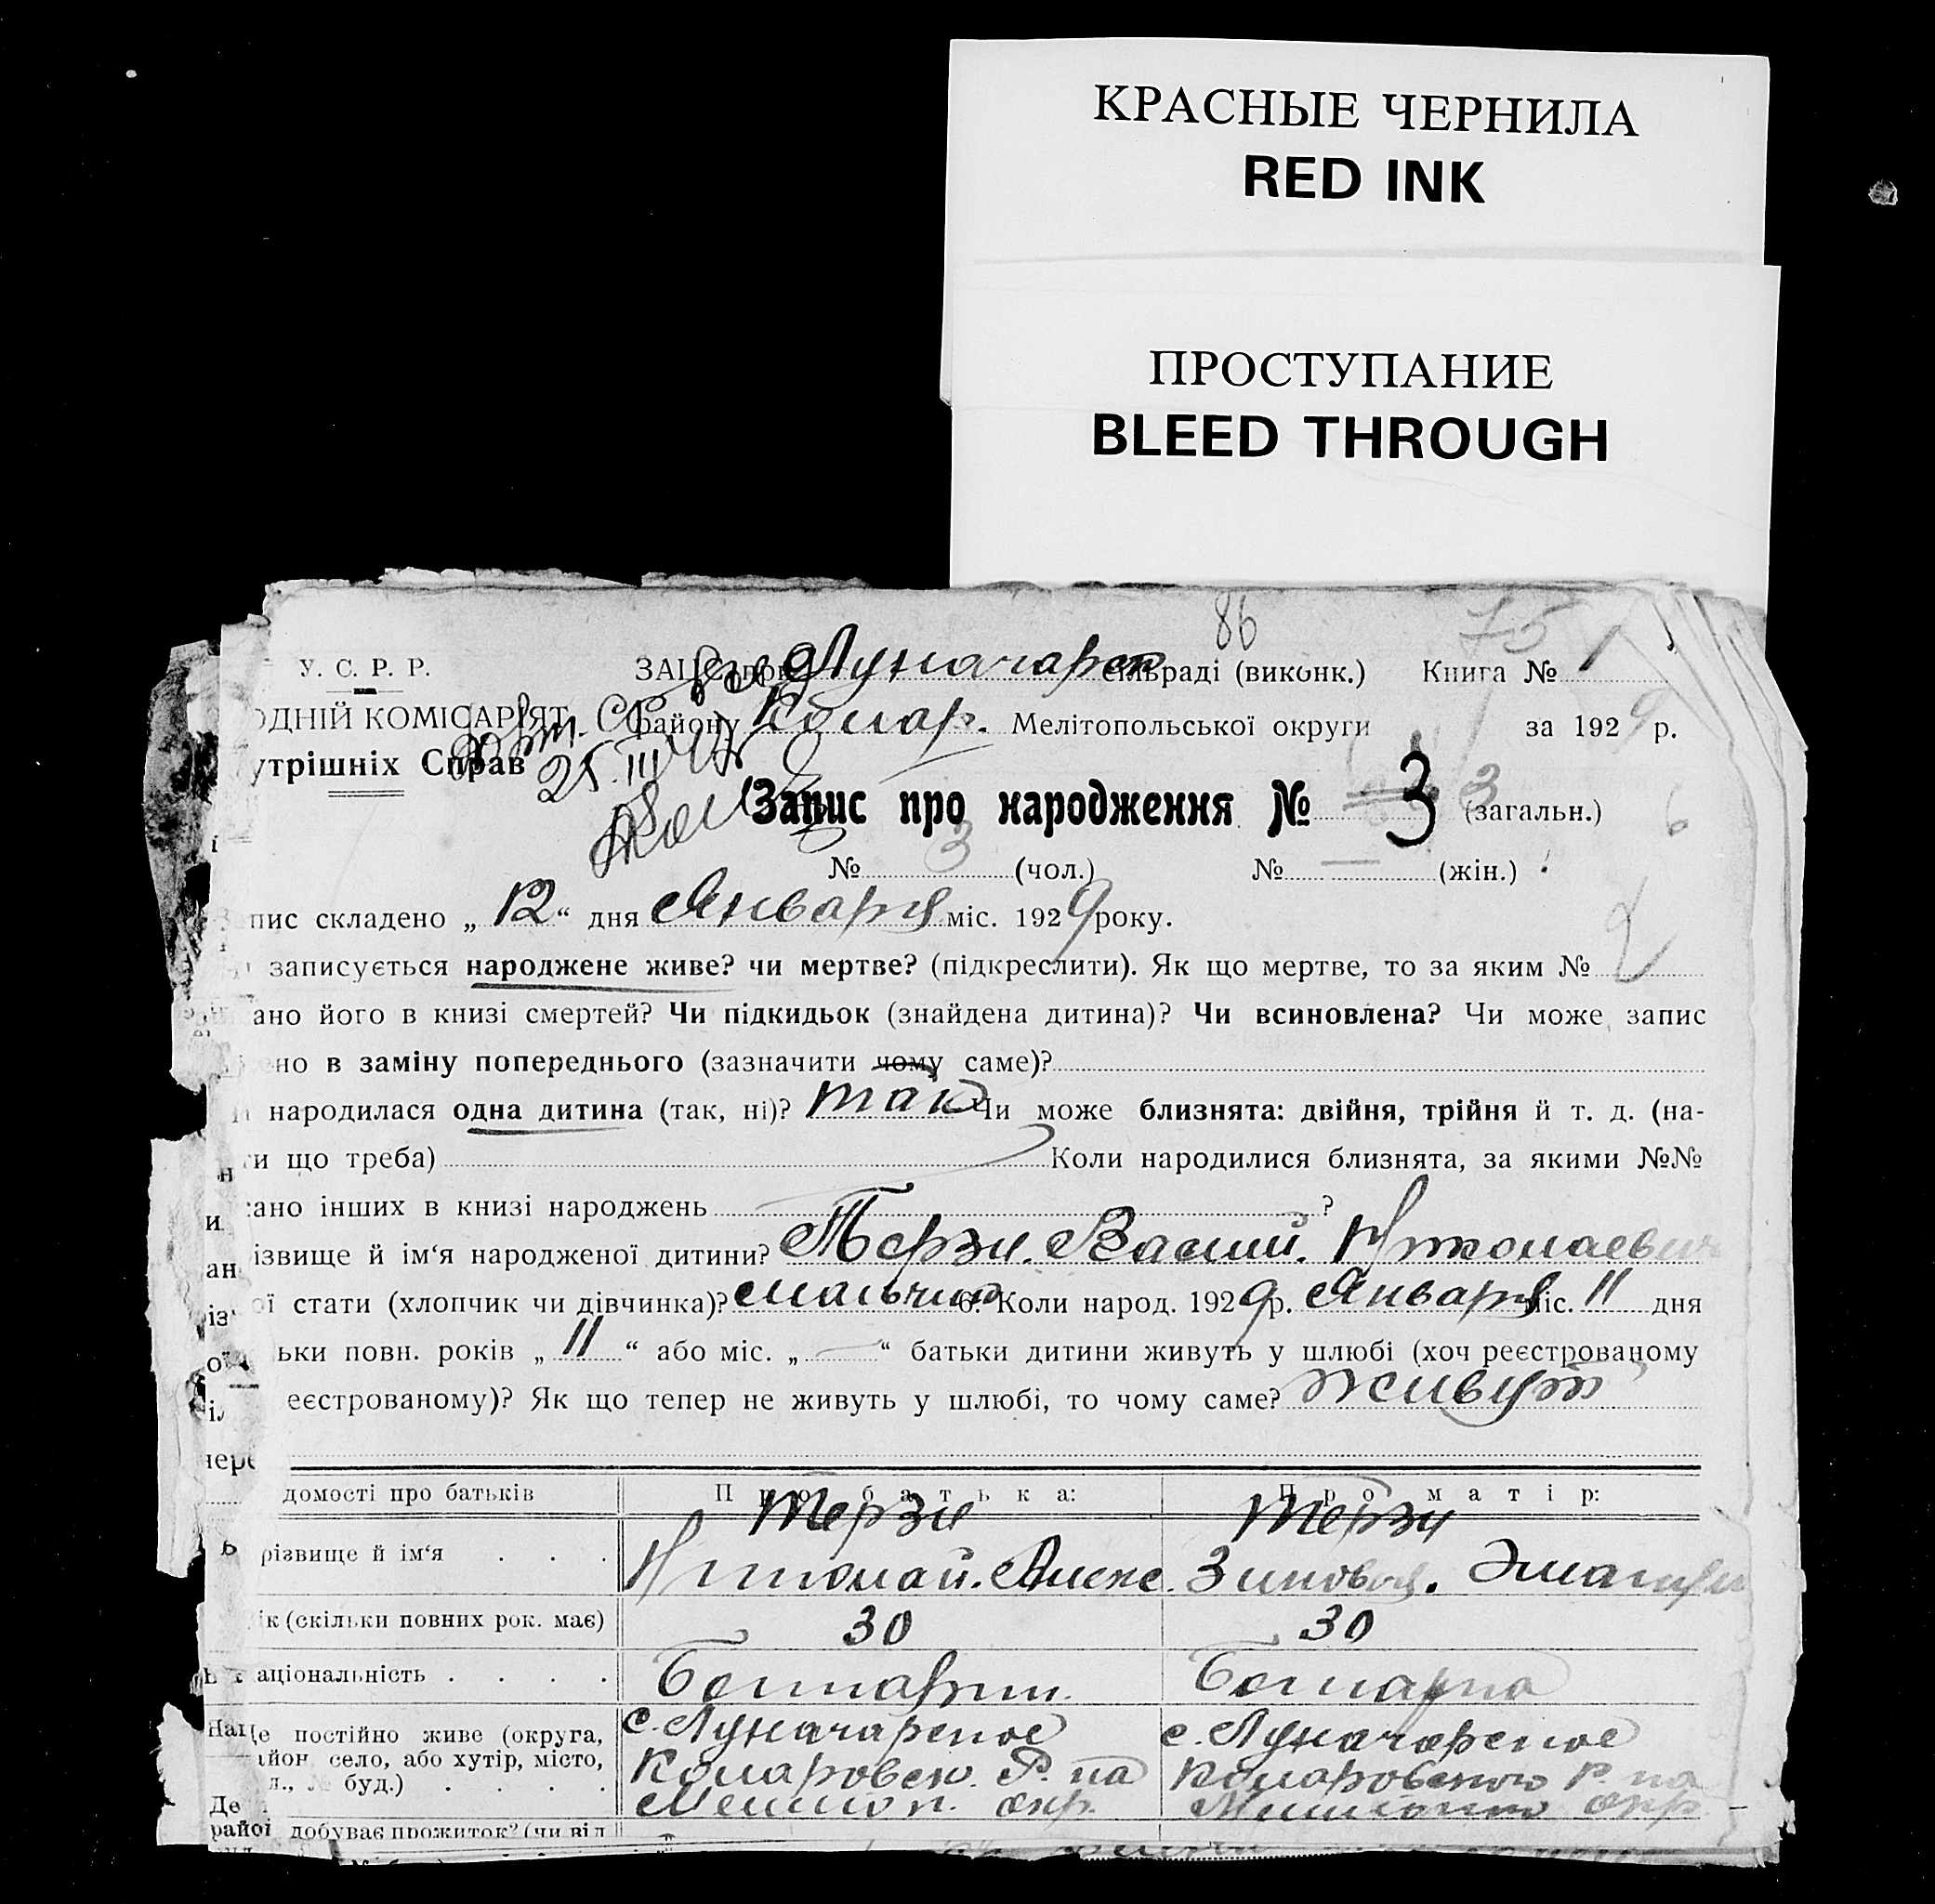 КРАСНЫЕ ЧЕРНИЛА
RED INK
ПРОСТУПАНИЕ
BLEED THROUGH
86 75
У. С. Р. Р. ЗАЦС при Луначарск сільраді (виконк.) Книга № 1
ОДНІЙ КОМІСАРІЯТ району Комар. Мелітопольської округи за 1929 р.
утрішніх Справ
25.III
Запис про народження № 3 3 (загальн.)
№ 3 (чол.) № — (жін.)
пис складено „ 12 “ дня Января міс. 1929 року.
записується народжене живе? чи мертве? (підкреслити). Як що мертве, то за яким №
ано його в книзі смертей? Чи підкидьок (знайдена дитина)? Чи всиновлена? Чи може запис
но в заміну попереднього (зазначити чому саме)?
народилася одна дитина (так, ні)? так Чи може близнята: двійня, трійня й т. д. (на-
ти що треба) Коли народилися близнята, за якими №№
ано інших в книзі народжень ?
ізвище й ім‘я народженої дитини? Терзи. Василий. Николаевич
ої стати (хлопчик чи дівчинка)? мальчик 6. Коли народ. 1929 р. Января міс. 11 дня
ьки повн. років „ 11 “ або міс. „ — “ батьки дитини живуть у шлюбі (хоч реєстрованому
еєстрованому)? Як що тепер не живуть у шлюбі, то чому саме? живут
домості про батьків Про батька: Про матір:
Терзи Терзи
різвище й ім‘я . . . Николай. Алекс. Зиновия.
ік (скільки повних рок. має) 30 30
аціональність . . . . Болгарин. Болгарка
е постійно живе (округа, с. Луначарское с. Луначарское
айон село, або хутір, місто, Комаровск. Р. на Комаровского Р. на
л., № буд.) . . . . Мелитоп. окр. окр
добуває прожиток? (чи від